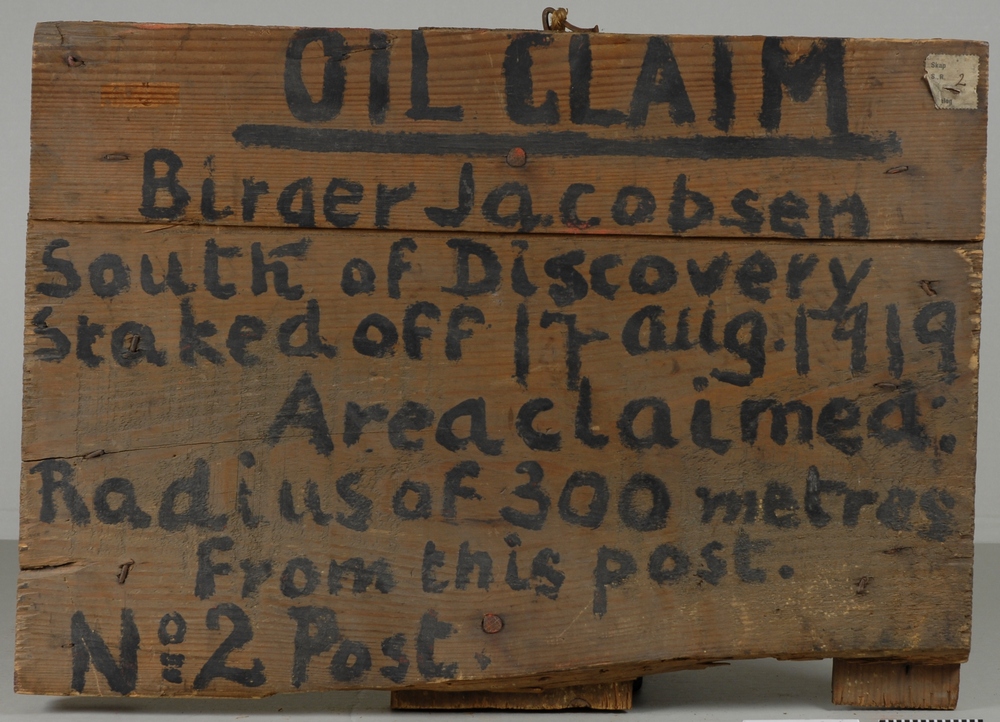 OIL CLAIM
Birger Jacobsen
South of Discovery
Staked off 17 aug. 1919
Area claimed:
Radius of 300 metres
From this post.
No 2 Post.
2